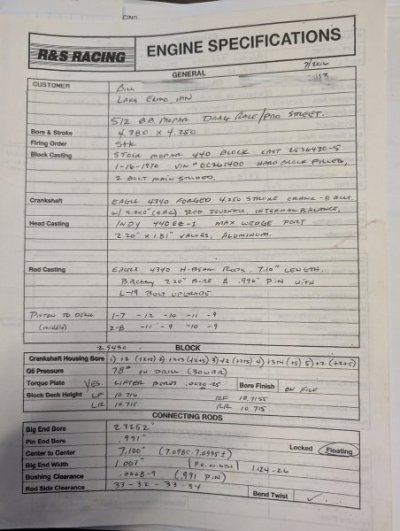 R&S RACING
ENGINE SPECIFICATIONS
GENERAL
7/2016
CUSTOMER Bill
LAKE ELMO, MN
512 BB MOPAR DRAG RACE/PRO STREET.
Bore & Stroke 4.380 x 4.250
Firing Order Stk
Block Casting STOCK MOPAR 440 BLOCK CAST 2536430-5
1-16-1970 HARD BLOCK FILLED,
2 BOLT MAIN STUDED,
Crankshaft EAGLE 4340 FORGED 4.250 STROKE CRANK - 8 BOLT,
w/ 2.200" ROD JOURNALS, INTERNAL BALANCE,
Head Casting INDY 440 EZ-1 MAX WEDGE PORT
2.20" x 1.81" VALVES, ALUMINUM.
Rod Casting EAGLE 4340 H-BEAM RODS, 7.10" LENGTH,
2.20" SIZE & .990" PIN WITH
L-19 BOLT UPGRADE
PISTON TO DECK 1-7 -12 -10 -11 -9
(middle) 2-8 -11 -9 -10 -9
BLOCK
Crankshaft Housing Bore
Oil Pressure 78# ON DRILL (30WT)
Torque Plate YES. LIFTER BORES Bore Finish ON FILE
Block Deck Height LF 10.716 RF 10.7155
LR 10.715 RR 10.715
CONNECTING RODS
Big End Bore 2.3252"
Pin End Bore .991"
Center to Center 7.100" Locked Floating
Big End Width 1.007"
Bushing Clearance (.991 PIN)
Rod Side Clearance 33 - 32 - 33 - 34 Bend Twist ✓